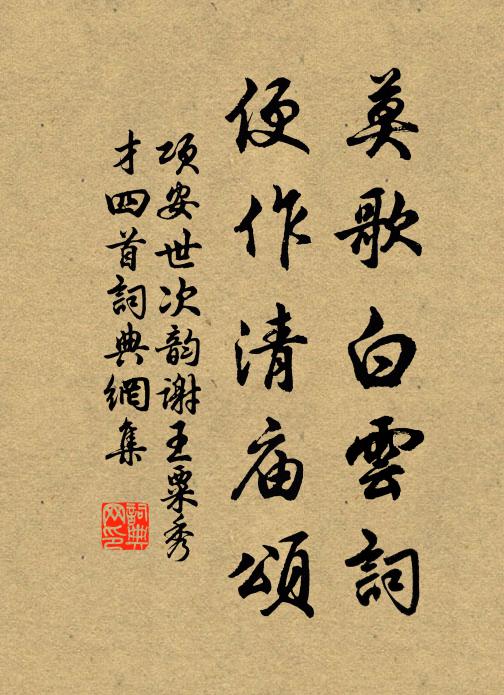 莫歌白雲詞
便作清庙頌
项安世次韵谢王粟秀
才四首詞典網集
詞典
网印